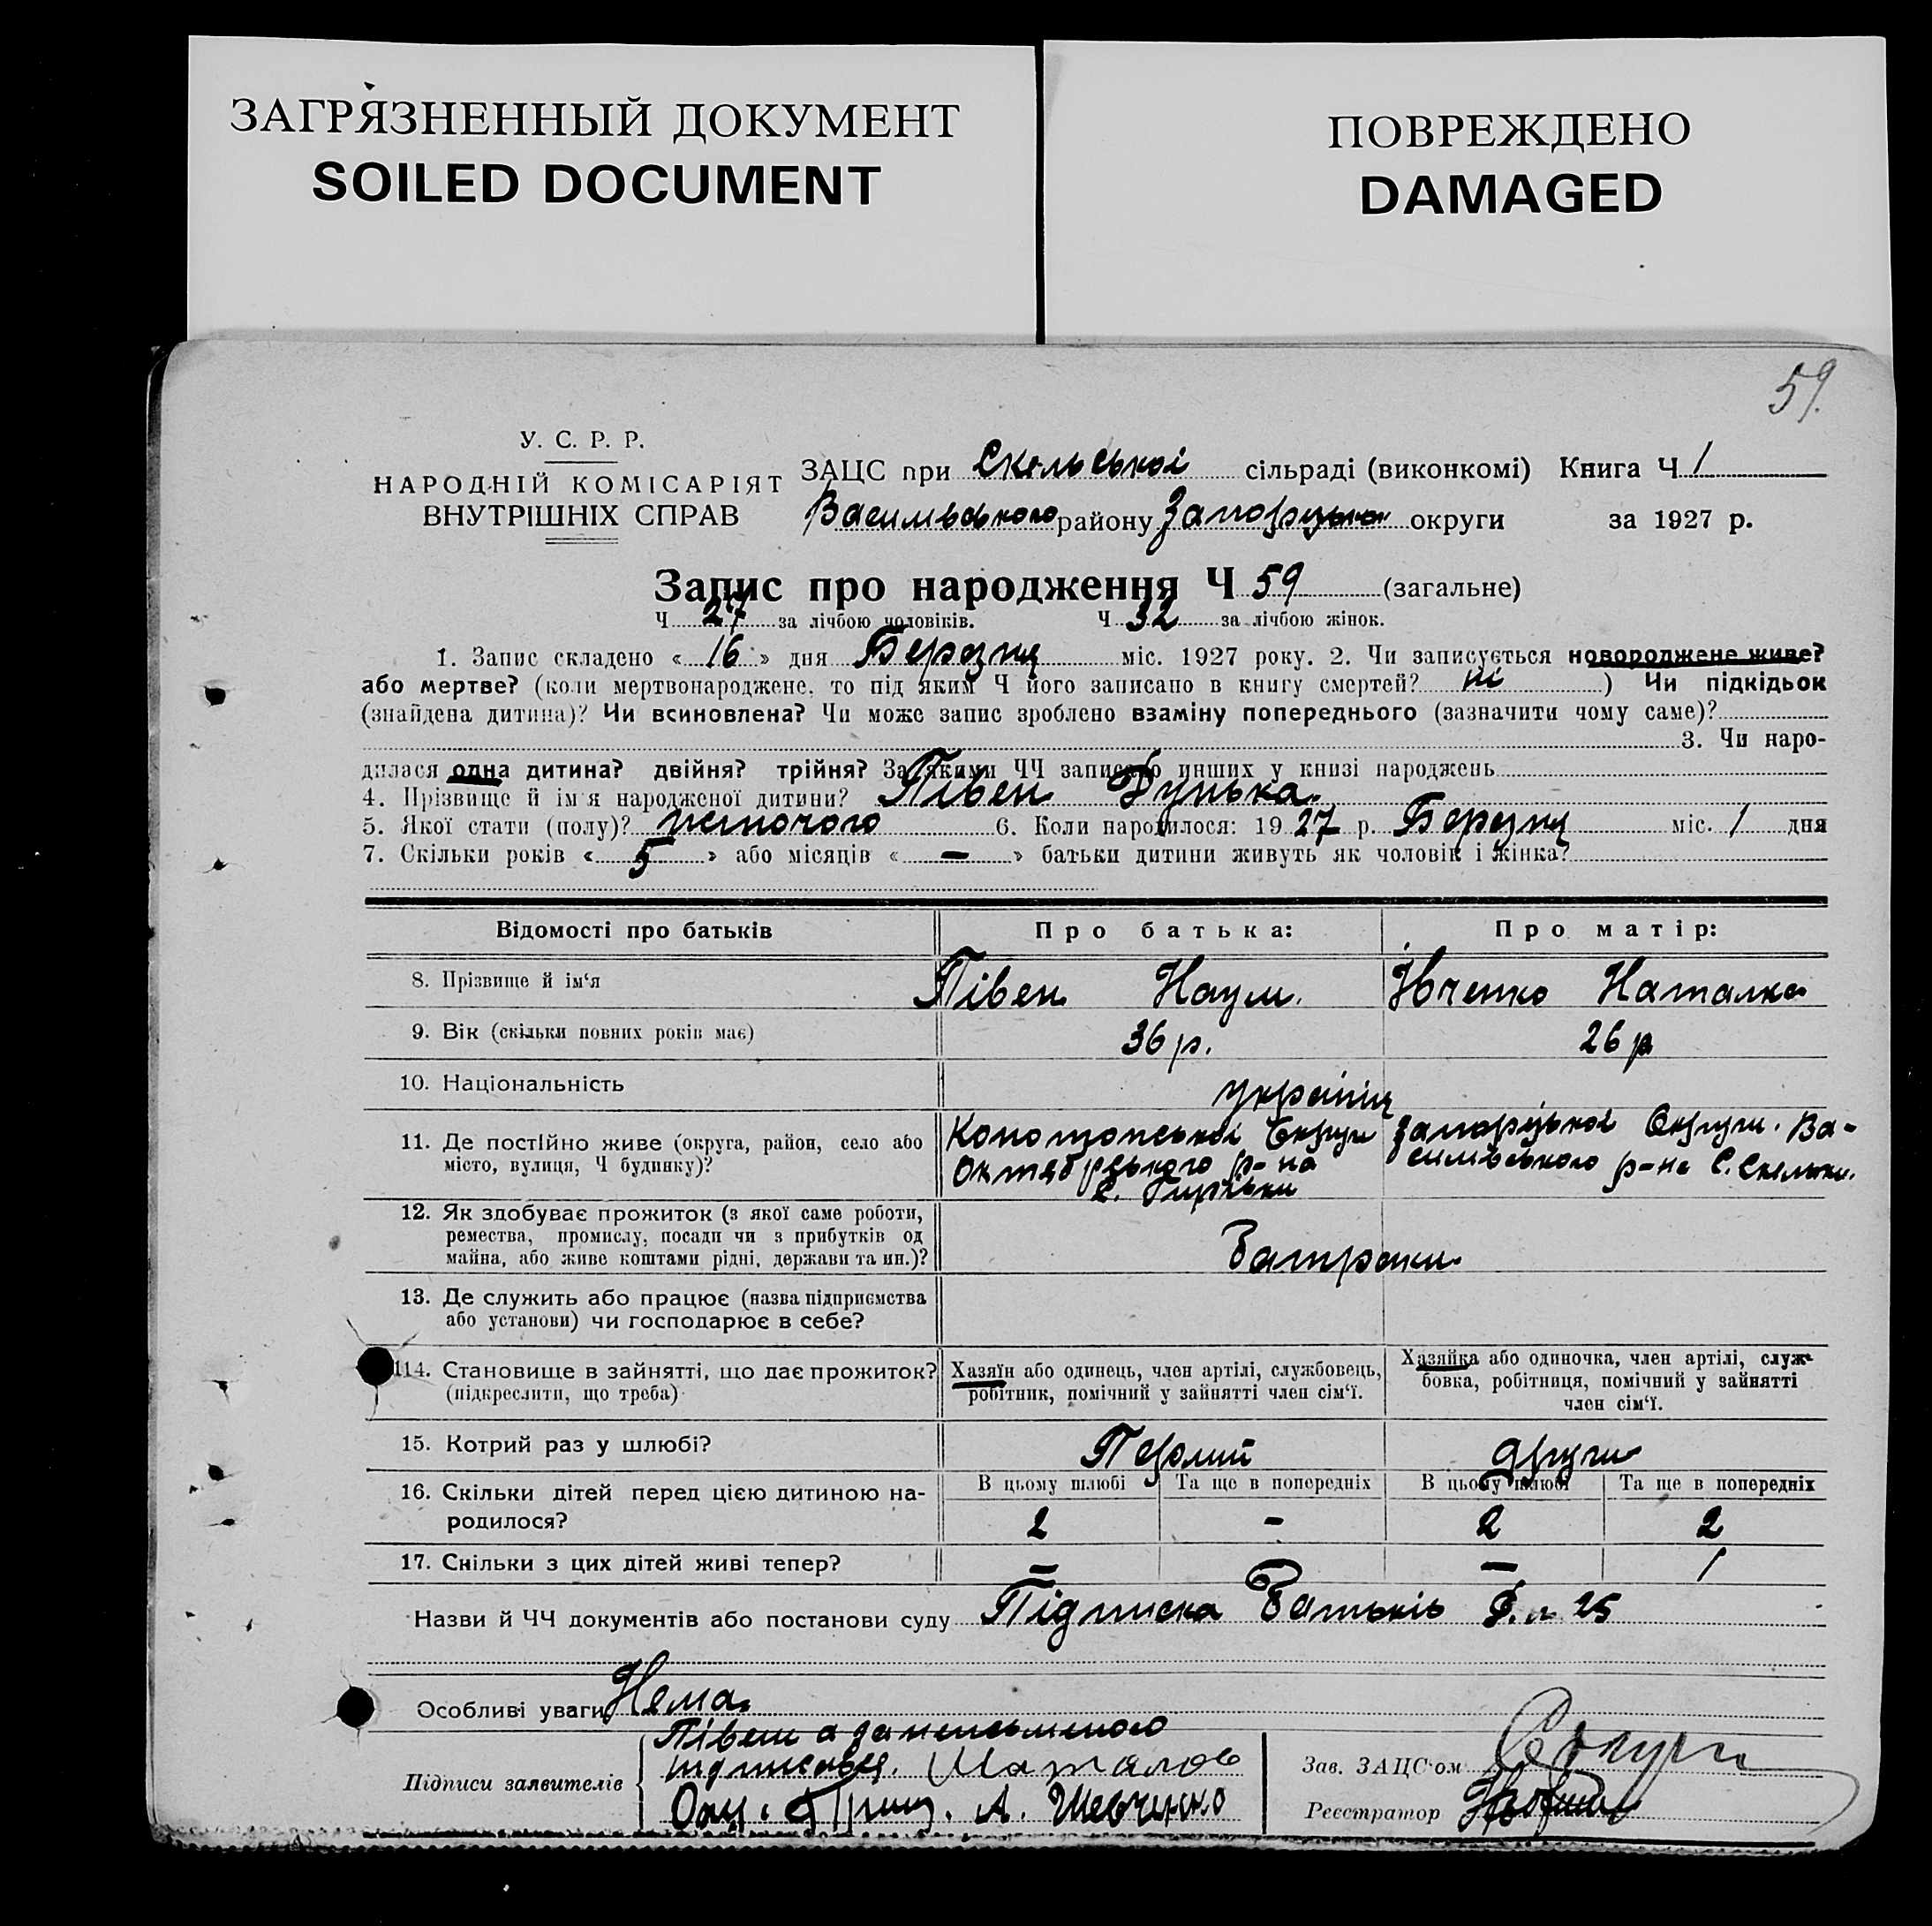 ЗАГРЯЗНЕННЫЙ ДОКУМЕНТ
SOILED DOCUMENT
ПОВРЕЖДЕНО
DAMAGED
59.
У. С. Р. Р.
НАРОДНІЙ КОМІСАРІЯТ
ВНУТРІШНІХ СПРАВ
ЗАЦС при Скельської сільраді (виконкомі) Книга Ч 1
Васильвського району Запорізької округи за 1927 р.
Запис про народження Ч 59 (загальне)
Ч 27 за лічбою чоловіків. Ч 32 за лічбою жінок.
1. Запис складено « 16 » дня Березня міс. 1927 року. 2. Чи записується новороджене живе?
або мертве? (коли мертвонароджене, то під яким Ч його записано в книгу смертей? ні ) Чи підкідьок
(знайдена дитина)? Чи всиновлена? Чи може запис зроблено взаміну попереднього (зазначити чому саме)?
3. Чи наро-
дилася одна дитина? двійня? трійня? За якими ЧЧ записано инших у книзі народжень
4. Прізвище й ім'я народженої дитини? Півен Дунька.
5. Якої стати (полу)? жіночого 6. Коли народилося: 1927 р. Березня міс. 1 дня
7. Скільки років « 5 » або місяців « — » батьки дитини живуть як чоловік і жінка?
Відомості про батьків Про батька: Про матір:
8. Прізвище й ім'я Півен Наум. Івченко Наталка
9. Вік (скільки повних років має) 36 р. 26 р
10. Національність україн
11. Де постійно живе (округа, район, село або
місто, вулиця, Ч будинку)?
Конотопської Округи
Октябрського р-на
с.
Запорізької Округи. Ва-
силівського р-на С. Скельки.
12. Як здобуває прожиток (з якої саме роботи,
ремества, промислу, посади чи з прибутків од
майна, або живе коштами рідні, держави та ин.)?
Батраки
13. Де служить або працює (назва підприємства
або установи) чи господарює в себе?
14. Становище в зайнятті, що дає прожиток?
(підкреслити, що треба)
Хазяїн або одинець, член артілі, службовець,
робітник, помічний у зайнятті член сім'ї.
Хазяйка або одиночка, член артілі, служ-
бовка, робітниця, помічний у зайнятті
член сім'ї.
15. Котрий раз у шлюбі? Перший други
16. Скільки дітей перед цією дитиною на-
родилося?
В цьому шлюбі Та ще в попередніх В цьому шлюбі Та ще в попередніх
2 - 2 2
17. Скільки з цих дітей живі тепер? — — 1
Назви й ЧЧ документів або постанови суду Підписка Батьків 25
Особливі уваги Нема.
Підписи заявителів
Півен а за неписьменого
підписався.
А. Шевченко
Зав. ЗАЦС'ом
Реєстратор